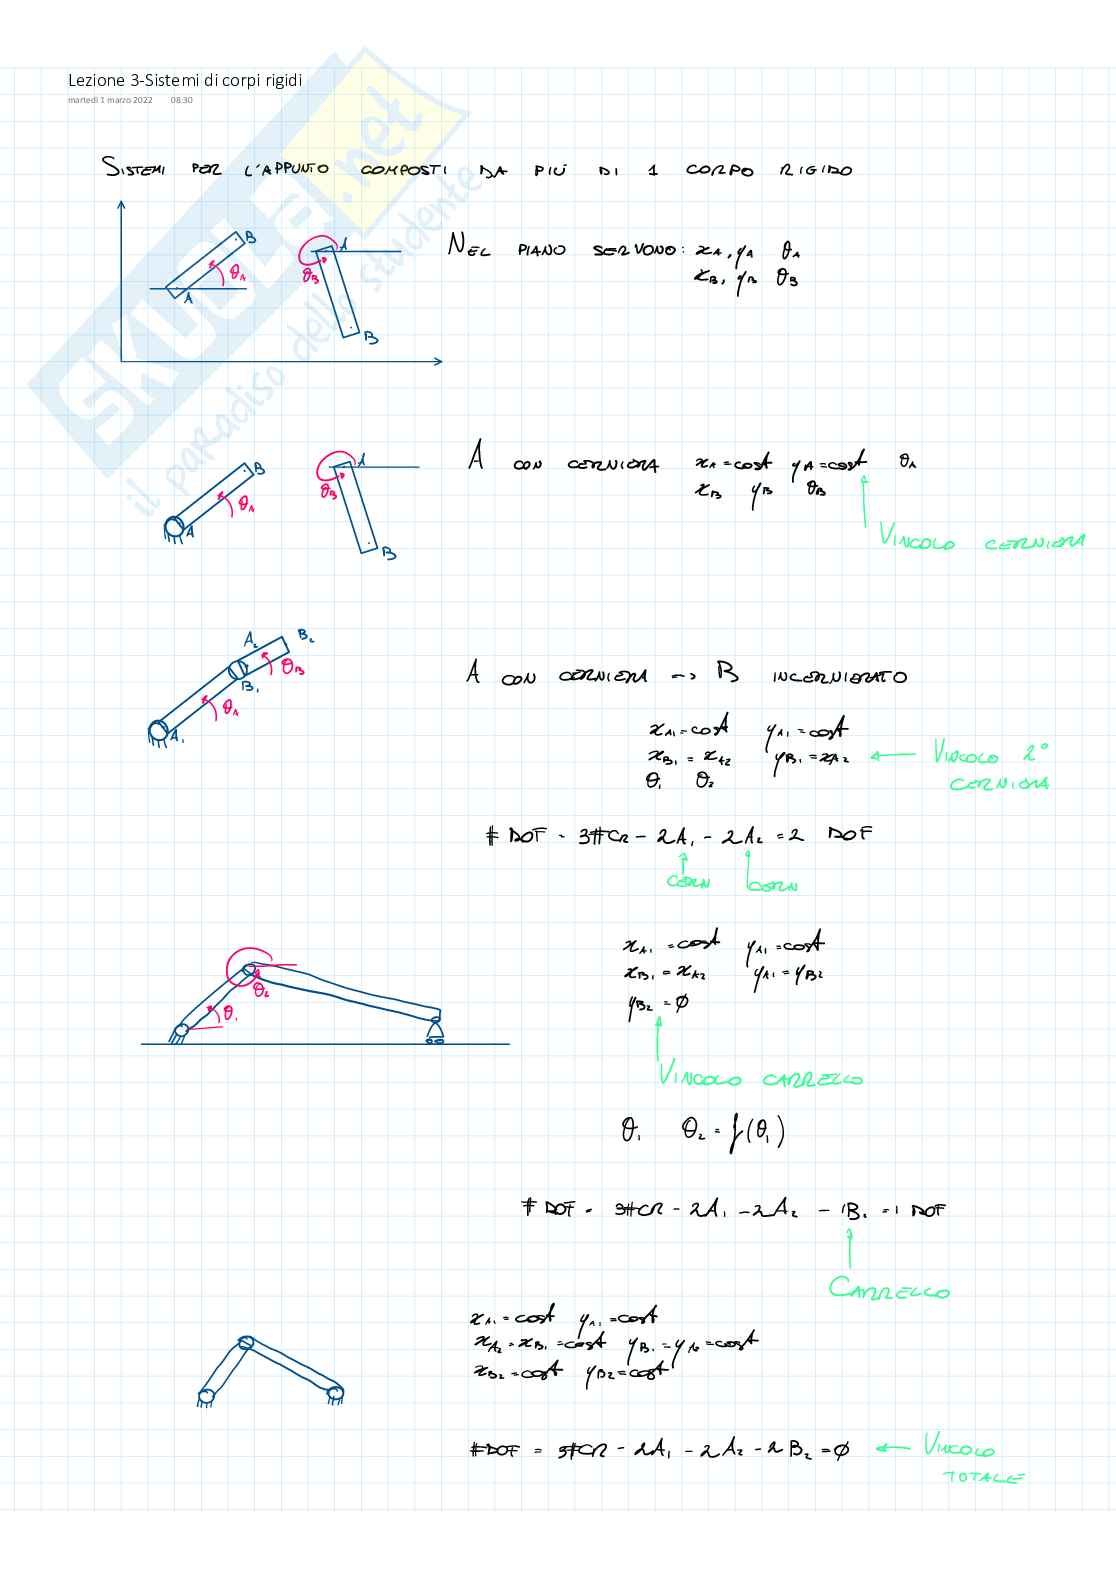 Lezione 3-Sistemi di corpi rigidi
martedì 1 marzo 2022 08:30
SISTEMI PER L'APPUNTO COMPOSTI DA PIÙ DI 1 CORPO RIGIDO
B
A
θA
A
θB
B
NEL PIANO SERVONO: xA, yA θA
xB, yB θB
B
A
θA
A
θB
B
A CON CERNIERA xA = cost yA = cost θA
xB yB θB
VINCOLO CERNIERA
A2
B2
θB
B1
θA
A1
A CON CERNIERA -> B INCERNIERATO
xA1 = cost yA1 = cost
xB1 = xA2 yB1 = xA2 ← VINCOLO 2°
CERNIERA
θ1 θ2
# DOF = 3#CR - 2A1 - 2A2 = 2 DOF
CERN CERN
θ2
θ1
xA1 = cost yA1 = cost
xB1 = xA2 yA1 = yB2
yB2 = ∅
VINCOLO CARRELLO
θ1 θ2 = f(θ1)
# DOF = 3#CR - 2A1 - 2A2 - 1B2 = 1 DOF
CARRELLO
xA1 = cost yA1 = cost
xA2 = xB1 = cost yB1 = yA2 = cost
xB2 = cost yB2 = cost
#DOF = 3#CR - 2A1 - 2A2 - 2B2 = ∅ ← VINCOLO
TOTALE
SKUOLA.net
il paradiso dello studente